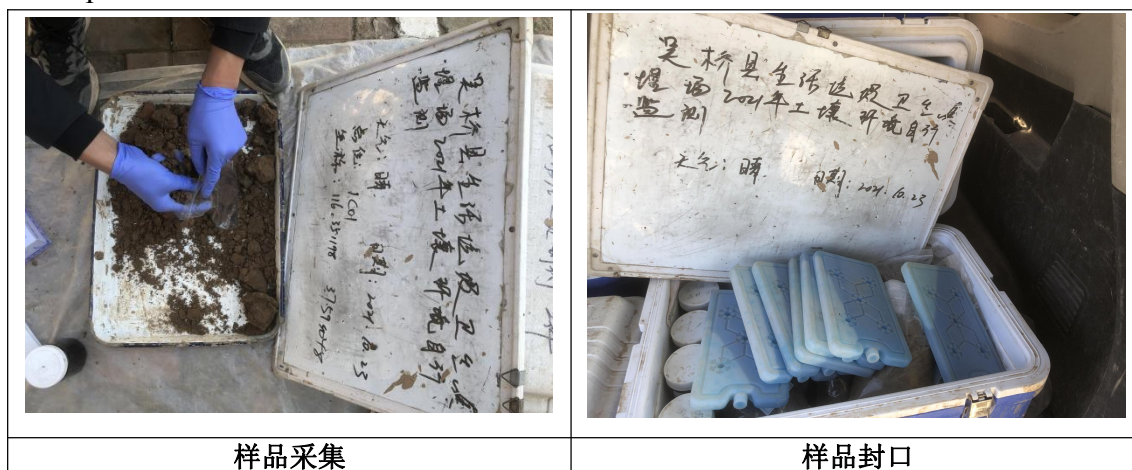 吴桥县生活垃圾卫生填
埋场2021年土壤环境自行
监测
天气：晴 日期：2021.10.23
点位：1C01
坐标：
样品采集
吴桥县生活垃圾卫生填
埋场2021年土壤环境自行
监测
天气：晴 日期：2021.10.23
样品封口